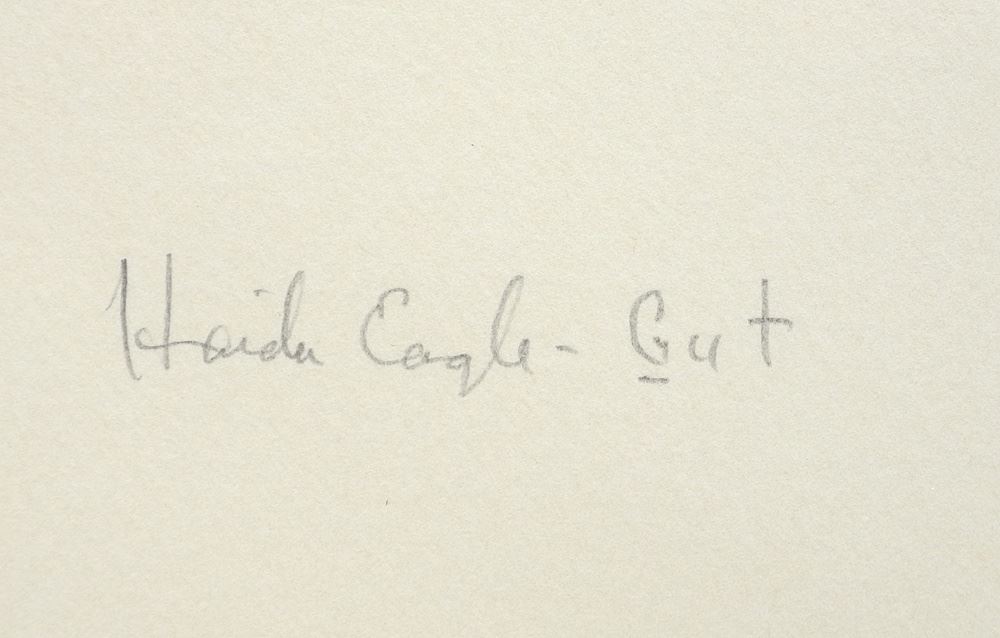 Haida Eagle - G̲ut